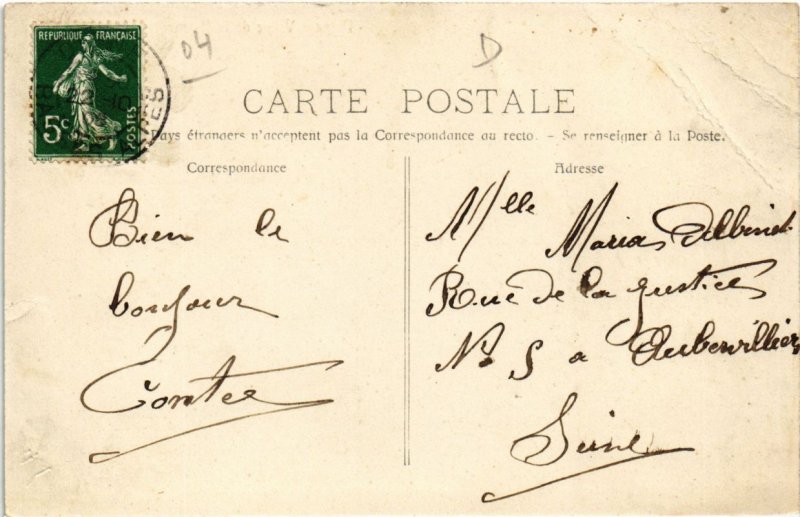 REPUBLIQUE FRANÇAISE
5c POSTES
04
D
CARTE POSTALE
Pays étrangers n'acceptent pas la Correspondance au recto. - Se renseigner à la Poste.
Correspondance
Bien le
bonjour
Comtee
Adresse
Mlle Maria Albinet
Rue de la justice
No 5 a Aubervilliers
Seine